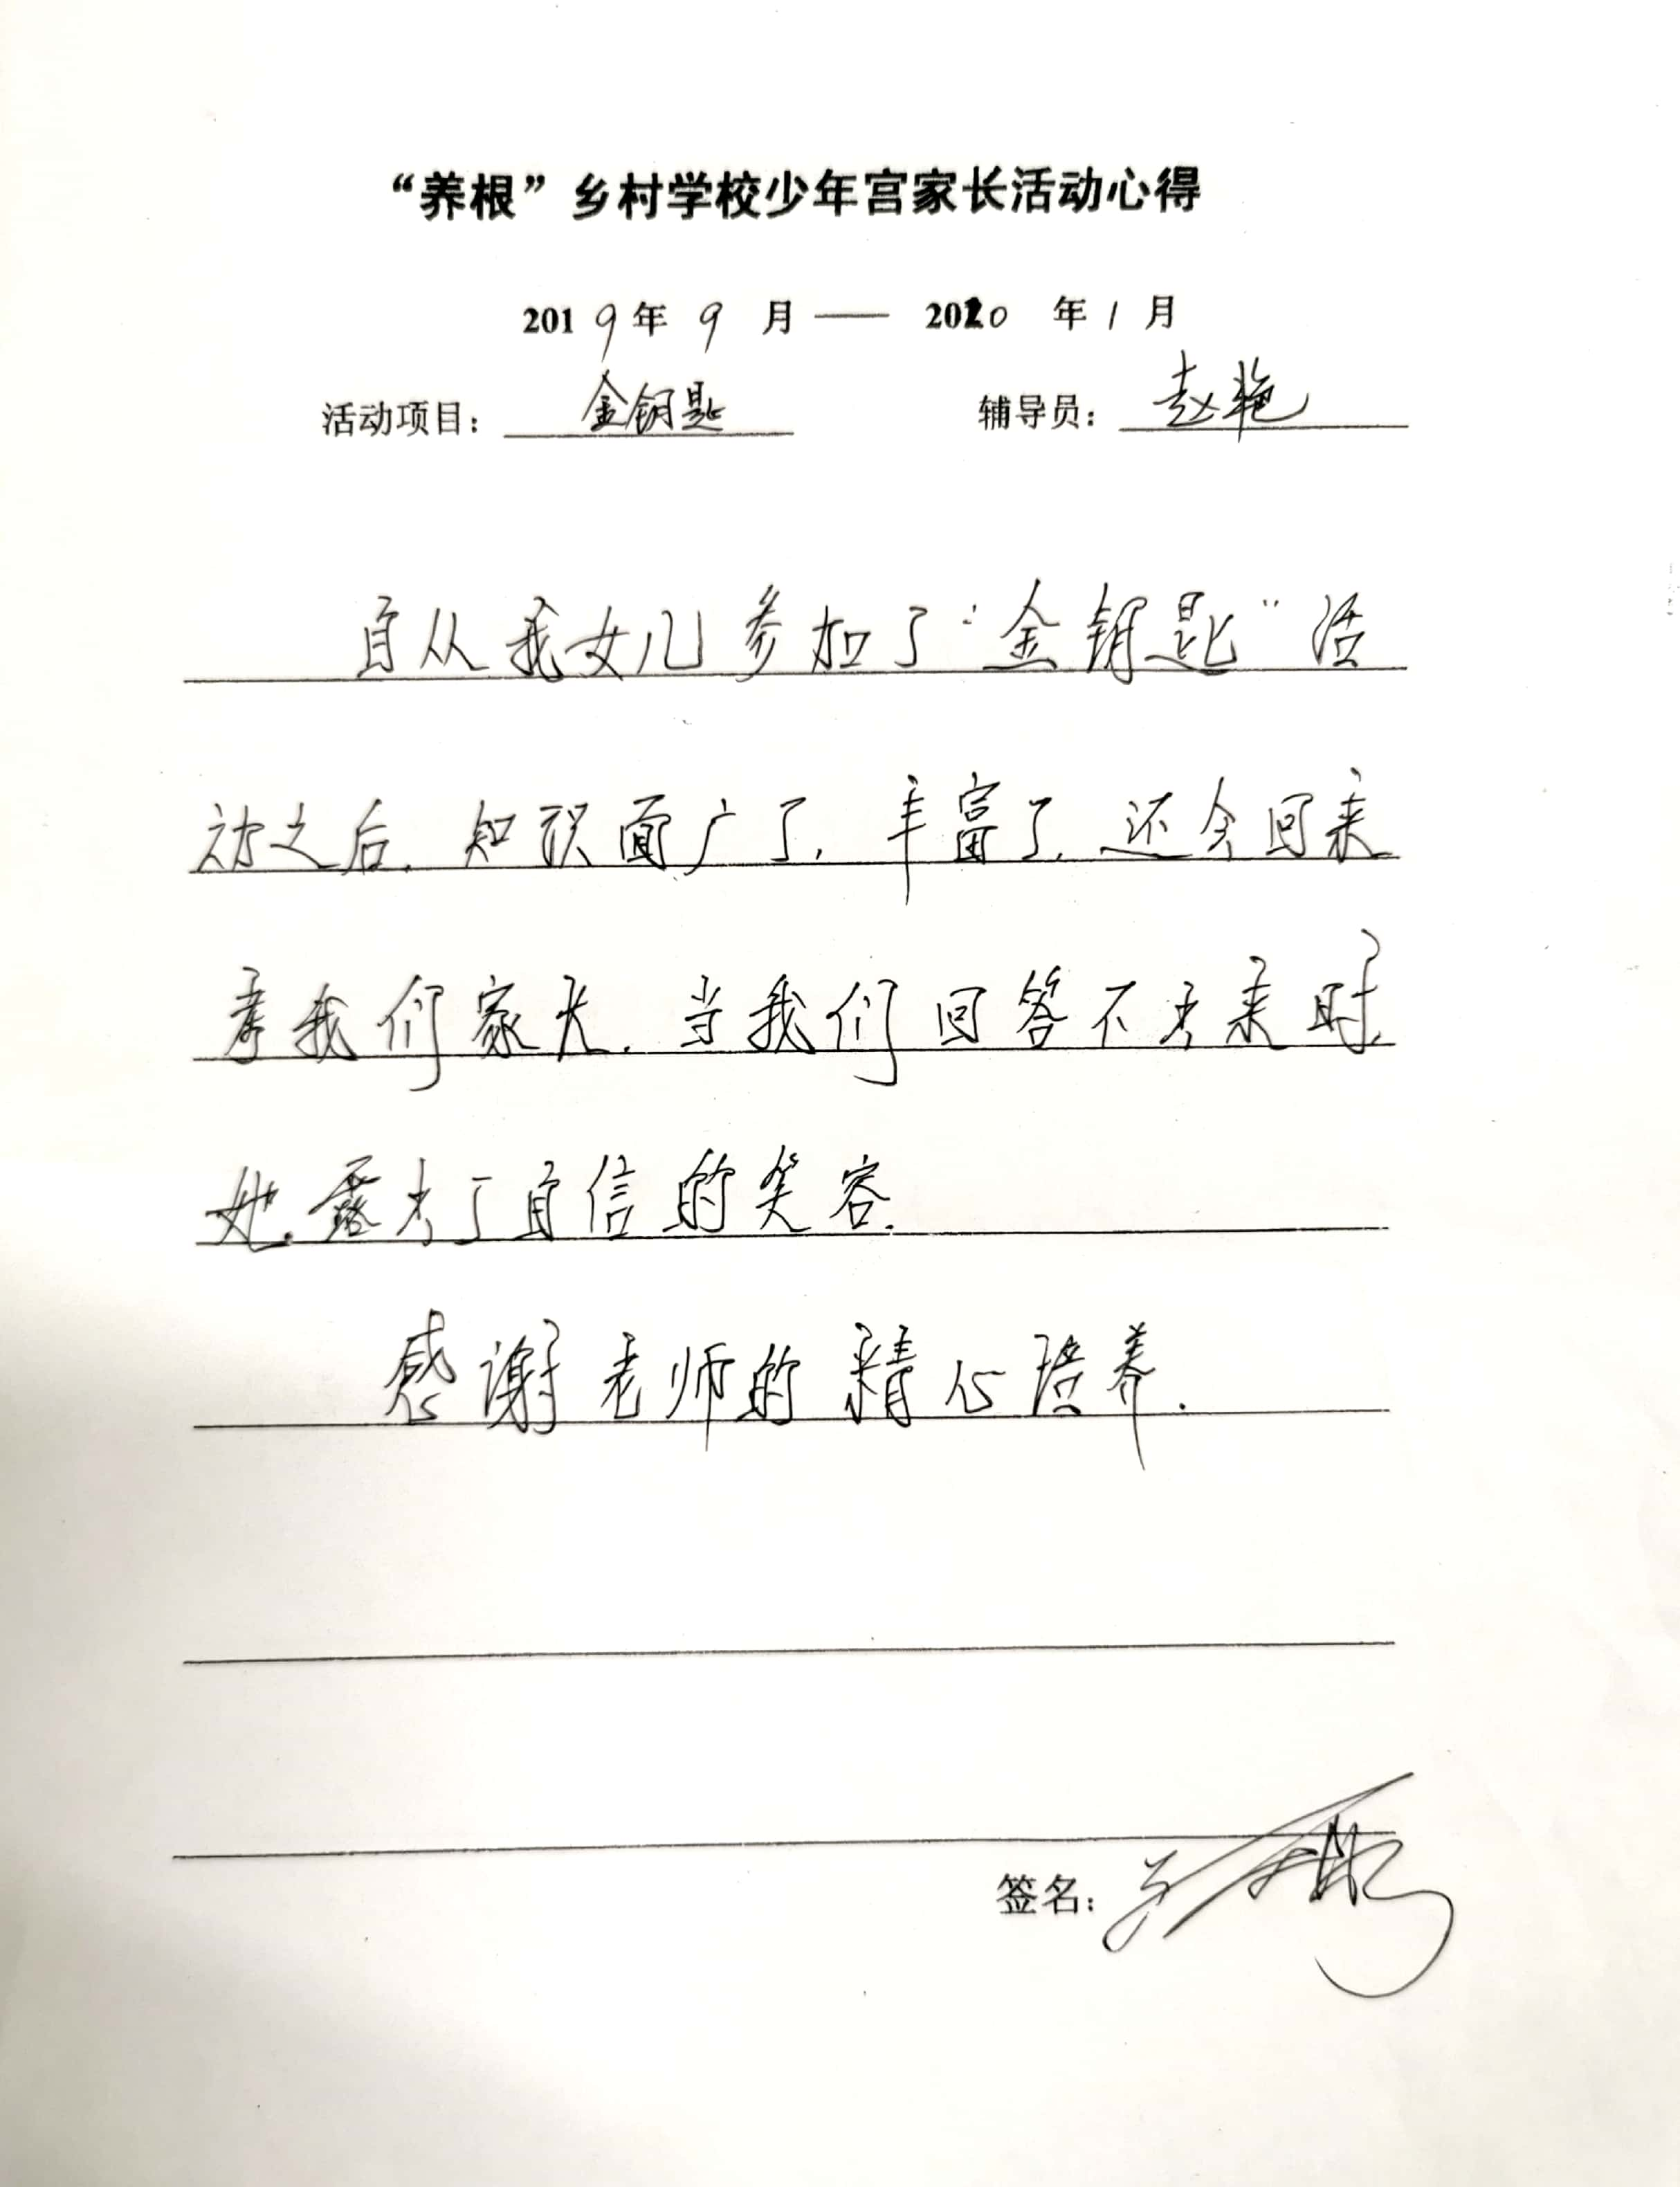 “养根”乡村学校少年宫家长活动心得
2019年 9 月—— 2020 年 1 月
活动项目：金钥匙 辅导员：赵艳
自从我女儿参加了“金钥匙”活
动之后，知识面广了，丰富了，还会回来
考我们家长，当我们回答不出来时，
她露出了自信的笑容.
感谢老师的精心培养.
签名：